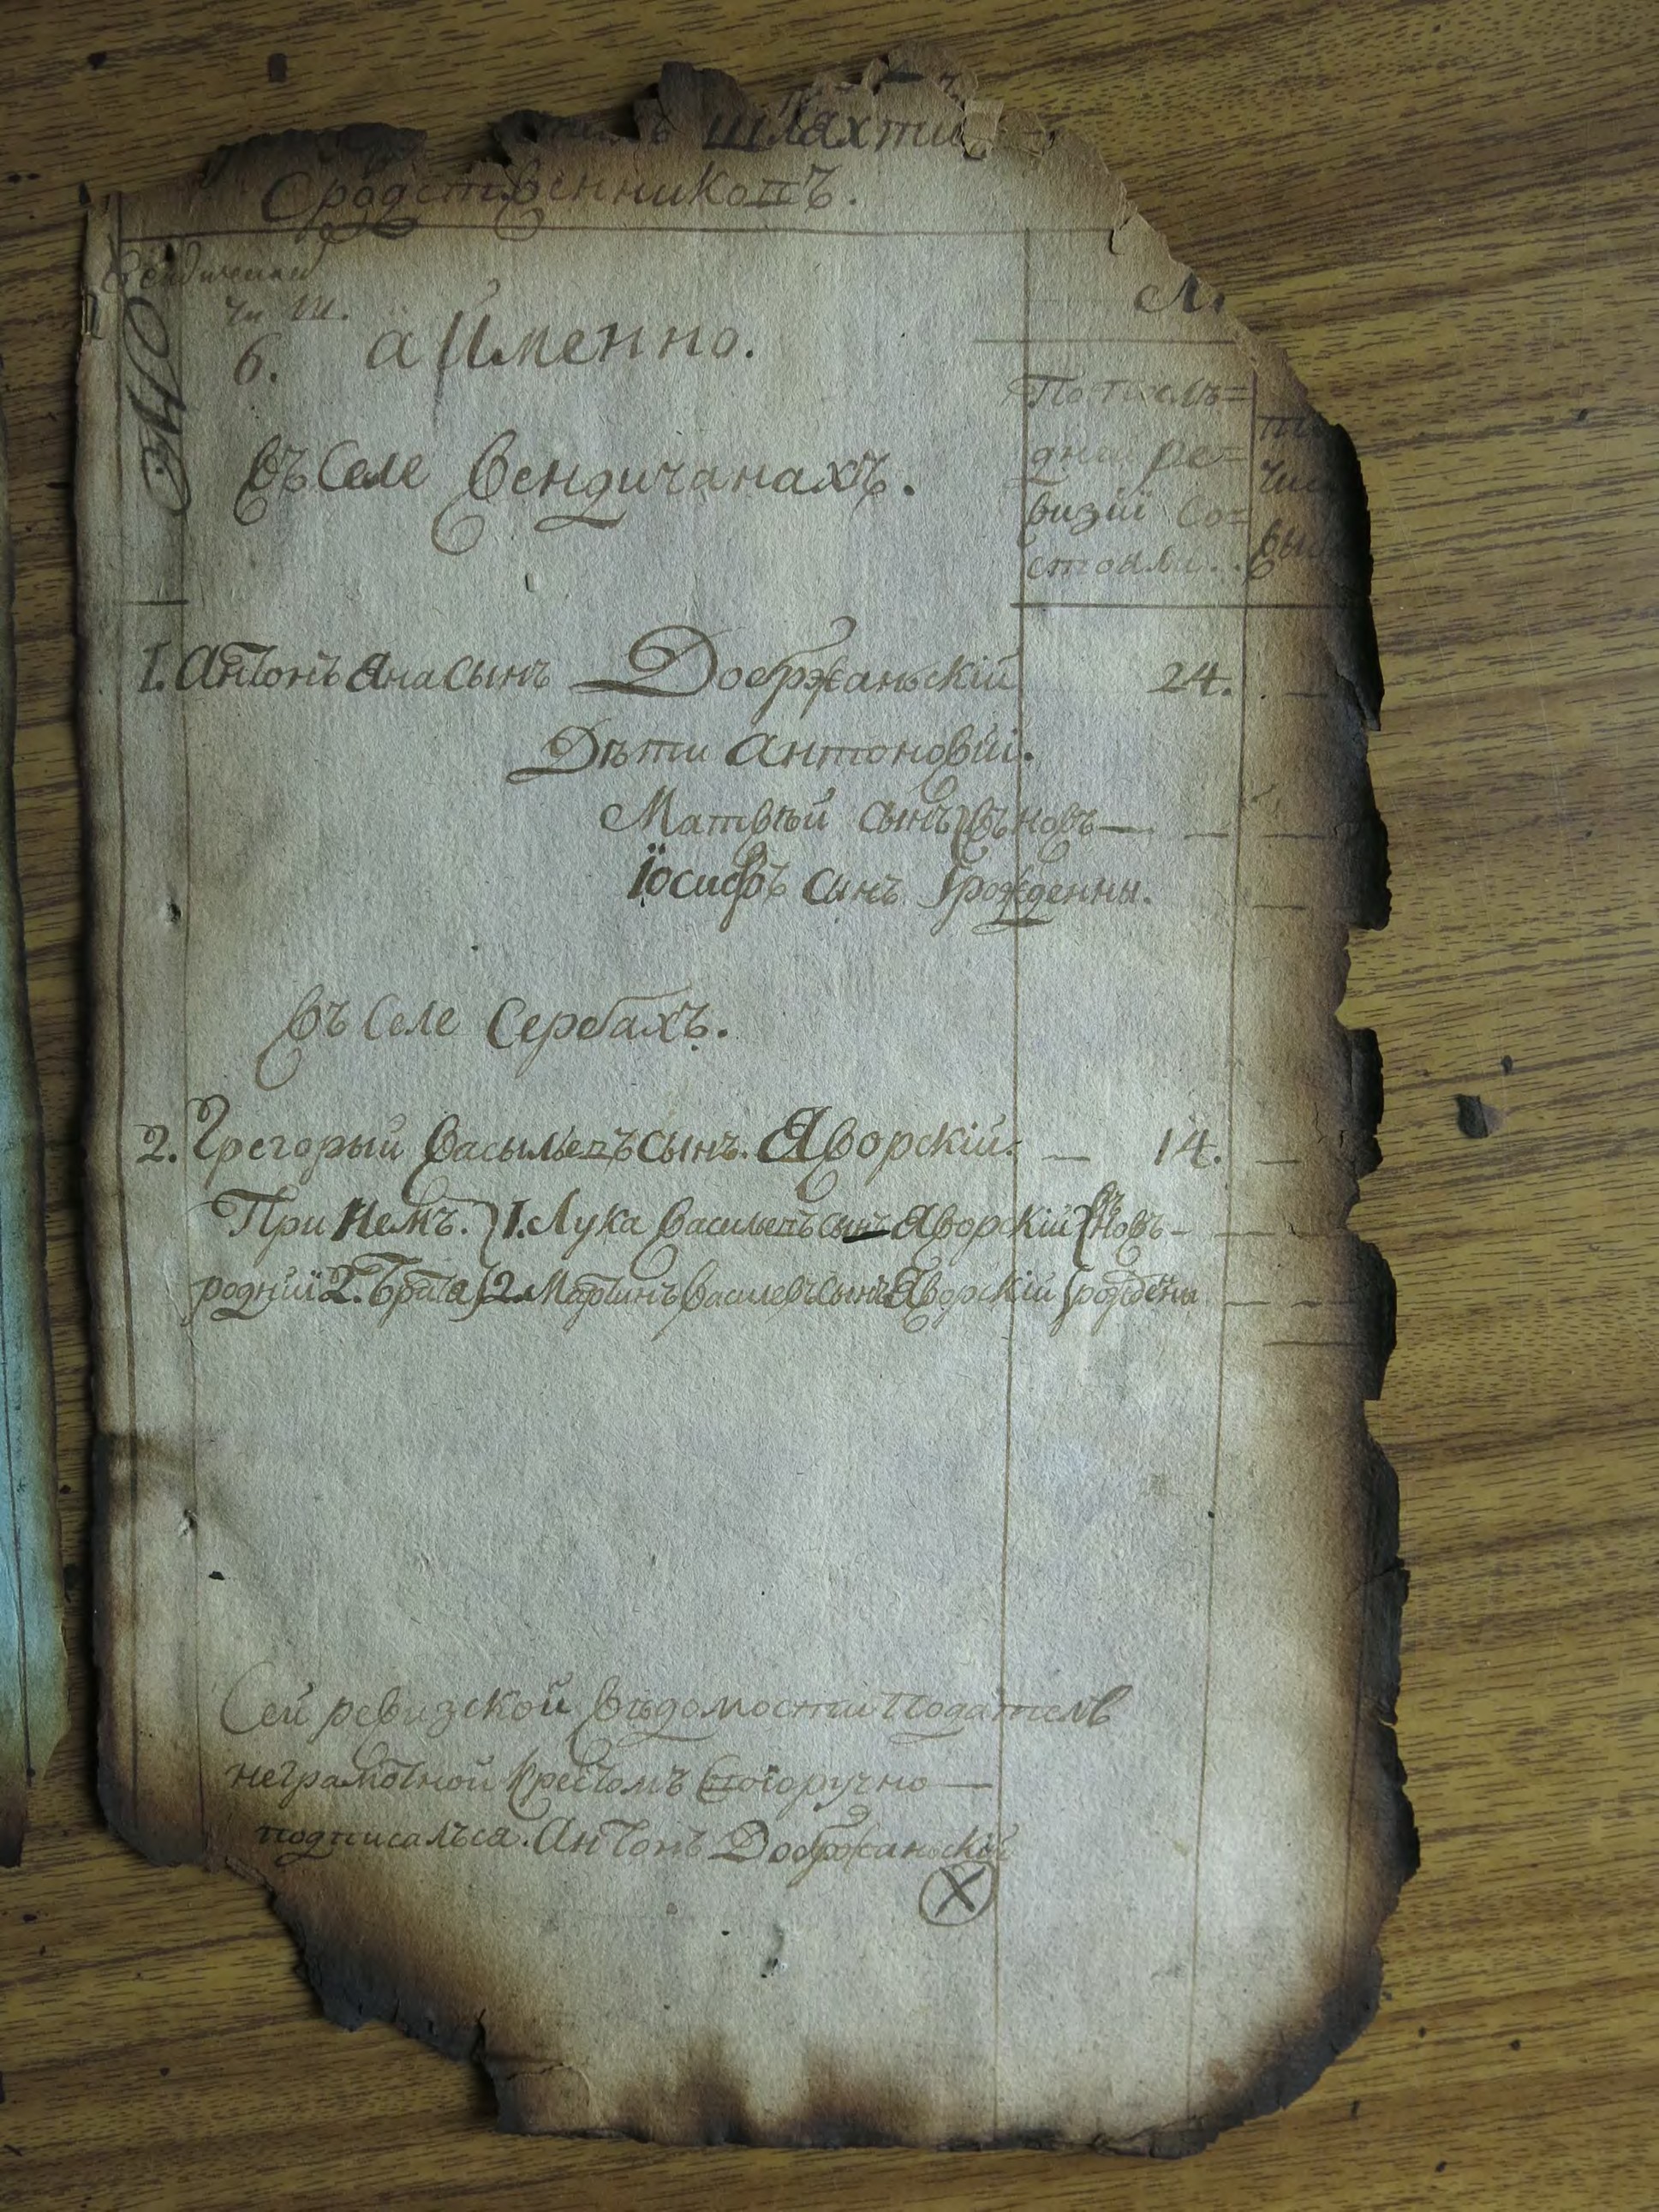 шляхти
Сродственниковъ.
6. а Именно.
Въ Селе Вендичанахъ.
По послѣ=
дней ре=
визiи со=
стояли.
1. Антонъ Яна Сынъ Добржаньскiй 24.
Дѣти Антоновiи.
Матвѣй сынъ въновъ
Iосифъ сынъ Урожденны.
Въ Селе Сербахъ.
2. Грегорый Васыльевъ сынъ. Яворскiй. 14.
При Немъ. 1. Лука Васильевъ сынъ Яворскiй въ Новъ-
роднiи 2. Брата 2. Мартинъ Василевъ сынъ Яворскiй рождены
Сей ревизской Вѣдомости Податель
неграмотной Крестомъ Своюручно
подписалъся. Антонъ Добржаньскiй